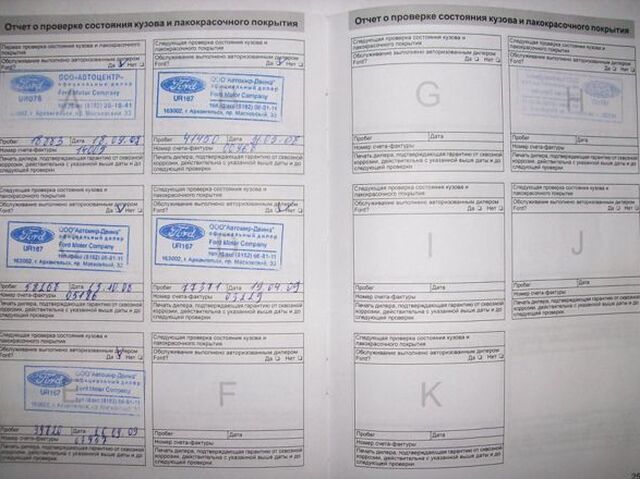 Отчет о проверке состояния кузова и лакокрасочного покрытия
Первая проверка состояния кузова и лакокрасочного
покрытия
Обслуживание выполнено авторизованным дилером
Ford? Да Нет
A
ООО «АВТОЦЕНТР»
официальный дилер
Ford Motor Company
UR076
Пробег Дата
Номер счета-фактуры
Печать дилера, подтверждающая гарантию от сквозной
коррозии, действительна с указанной выше даты и до
следующей проверки.
Следующая проверка состояния кузова и
лакокрасочного покрытия
Обслуживание выполнено авторизованным дилером
Ford? Да Нет
ООО "Автомир-Двина"
официальный дилер
Ford Motor Company
UR167
163002, г. Архангельск, пр. Московский, 33
Пробег 41450 Дата
Номер счета-фактуры
Печать дилера, подтверждающая гарантию от сквозной
коррозии, действительна с указанной выше даты и до
следующей проверки.
Следующая проверка состояния кузова и
лакокрасочного покрытия
Обслуживание выполнено авторизованным дилером
Ford? Да Нет
ООО"Автомир-Двина"
официальный дилер
Ford Motor Company
UR167
163002, г. Архангельск, пр. Московский, 33
Пробег Дата
Номер счета-фактуры
Печать дилера, подтверждающая гарантию от сквозной
коррозии, действительна с указанной выше даты и до
следующей проверки.
Следующая проверка состояния кузова и
лакокрасочного покрытия
Обслуживание выполнено авторизованным дилером
Ford? Да Нет
ООО"Автомир-Двина"
официальный дилер
Ford Motor Company
UR167
163002, г. Архангельск, пр. Московский, 33
Пробег 77371 Дата 19.04.09
Номер счета-фактуры
Печать дилера, подтверждающая гарантию от сквозной
коррозии, действительна с указанной выше даты и до
следующей проверки.
Следующая проверка состояния кузова и
лакокрасочного покрытия
Обслуживание выполнено авторизованным дилером
Ford? Да Нет
E
ООО"Автомир-Двина"
официальный дилер
Ford Motor Company
UR167
Пробег Дата
Номер счета-фактуры
Печать дилера, подтверждающая гарантию от сквозной
коррозии, действительна с указанной выше даты и до
следующей проверки.
Следующая проверка состояния кузова и
лакокрасочного покрытия
Обслуживание выполнено авторизованным дилером
Ford? Да Нет
F
Пробег Дата
Номер счета-фактуры
Печать дилера, подтверждающая гарантию от сквозной
коррозии, действительна с указанной выше даты и до
следующей проверки.
Отчет о проверке состояния кузова и лакокрасочного покрытия
Следующая проверка состояния кузова и
лакокрасочного покрытия
Обслуживание выполнено авторизованным дилером
Ford? Да Нет
G
Пробег Дата
Номер счета-фактуры
Печать дилера, подтверждающая гарантию от сквозной
коррозии, действительна с указанной выше даты и до
следующей проверки.
Следующая проверка состояния кузова и
лакокрасочного покрытия
Обслуживание выполнено авторизованным дилером
Ford? Да Нет
H
Пробег Дата
Номер счета-фактуры
Печать дилера, подтверждающая гарантию от сквозной
коррозии, действительна с указанной выше даты и до
следующей проверки.
Следующая проверка состояния кузова и
лакокрасочного покрытия
Обслуживание выполнено авторизованным дилером
Ford? Да Нет
I
Пробег Дата
Номер счета-фактуры
Печать дилера, подтверждающая гарантию от сквозной
коррозии, действительна с указанной выше даты и до
следующей проверки.
Следующая проверка состояния кузова и
лакокрасочного покрытия
Обслуживание выполнено авторизованным дилером
Ford? Да Нет
J
Пробег Дата
Номер счета-фактуры
Печать дилера, подтверждающая гарантию от сквозной
коррозии, действительна с указанной выше даты и до
следующей проверки.
Следующая проверка состояния кузова и
лакокрасочного покрытия
Обслуживание выполнено авторизованным дилером
Ford? Да Нет
K
Пробег Дата
Номер счета-фактуры
Печать дилера, подтверждающая гарантию от сквозной
коррозии, действительна с указанной выше даты и до
следующей проверки.